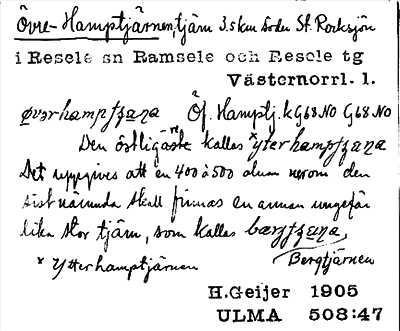 Övre-Hamptjärnen, tjärn 3.5 km söder St. Rocksjön
i Resele sn Ramsele och Resele tg
Västernorrl. l.
øvərhampʃʒæna Öf. Hamptj. k G68 NO G68 NO
Den östligaste kallas ˣytərhampʃʒæna
Det uppgives att en 400 à 500 alnar norom den
sist nämnda skall finnas en annan ungefär
lika stor tjärn, som kallas bærʃʒæna,
× Ytterhamptjärnen Bergtjärnen
H.Geijer 1905
ULMA 508:47